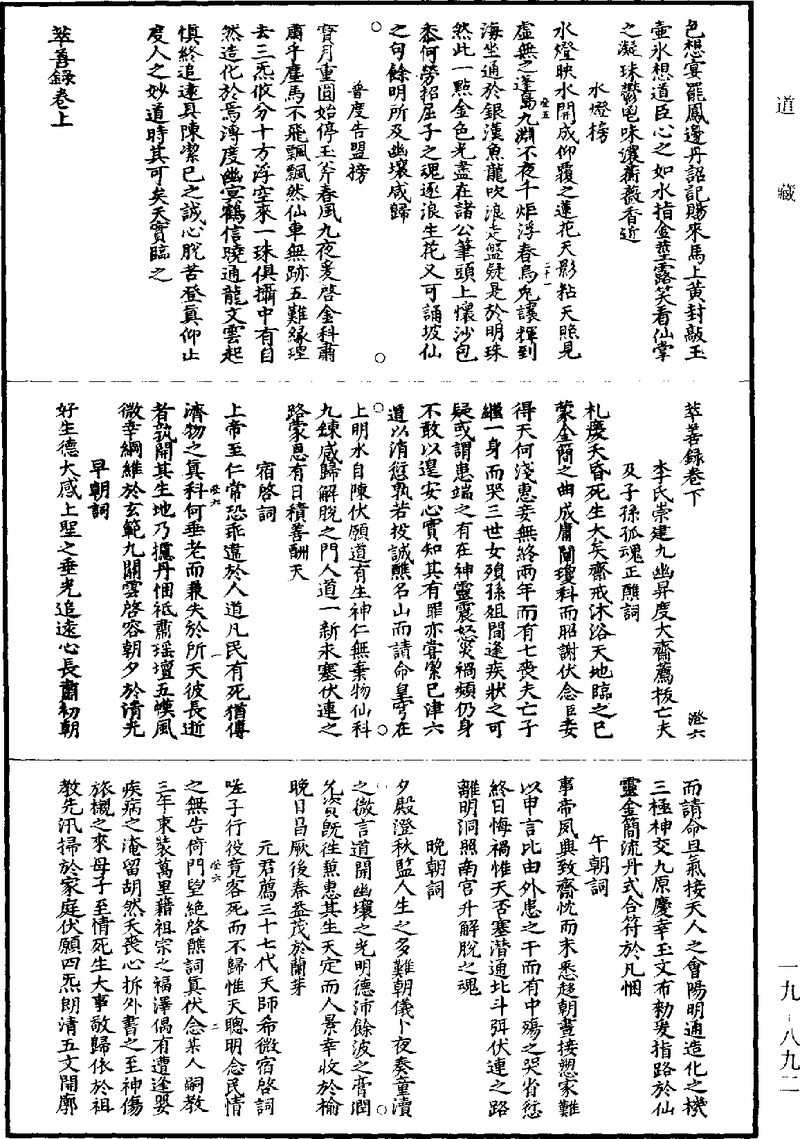 道藏
色想宴罷鳳邊丹詔記賜來馬上黃封敲玉
壷氷想道臣心之如水指金莖露笑看仙掌
之凝珠鬱鬯味濃薔薇香近
水燈榜
水燈映水開成仰覆之蓮花天影粘天照見
虛無之蓬島九淵不夜千炬浮春烏兔讓輝到
海坐通於銀漢魚龍吹浪走盤疑是於明珠
然此一點金色光盡在諸公筆頭上懷沙包
黍何勞招屈子之魂逐浪生花又可誦坡仙
之句餘明所及幽壤咸歸
普度告盟榜
寳月重圓始停玉斧春風九夜爰啓金科肅
肅乎塵馬不飛飄飄然仙車無跡五難緣理
去三炁攸分十方浮空來一珠俱攝中有自
然造化於焉溥度幽冥鶴信曉通龍文雲起
慎終追遠具陳潔已之誠心脫苦登真仰止
度人之妙道時其可矣天實臨之
萃善錄卷上
萃善錄卷下
澄六
李氏崇建九幽昇度大齋薦拔亡夫
及子孫孤魂正醮詞
札瘥夭昏死生大矣齋戒沐浴天地臨之已
蒙金簡之曲成庸闡瓊科而昭謝伏念臣妾
得天何淺惠妾無終兩年而有七喪夫亡子
繼一身而哭三世女殞孫殂間逢疾狀之可
疑或謂患端之有在神靈震怒災禍頻仍身
不敢以遑安心實知其有罪亦嘗潔已津六
道以消愆孰若投誠醮名山而請命皇穹在
上明水自陳伏願道有生神仁無棄物仙科
九鍊咸歸解脫之門人道一新永塞伏連之
路蒙恩有日積善酬天
宿啓詞
上帝至仁常恐乖違於人道凡民有死猶傳
濟物之真科何垂老而兼失於所天彼長逝
者孰開其生地乃攄丹悃祇肅瑤壇五幪風
微幸綱維於玄範九關雲啓容朝夕於清光
早朝詞
好生德大感上聖之垂光追遠心長肅初朝
而請命旦氣接天人之會陽明通造化之機
三極神交九原慶幸玉文布勑爰指路於仙
靈金簡流丹式合符於凡悃
午朝詞
事帝夙興致齋忱而未悉趍朝晝接愬家難
以申言比由外患之干而有中殤之哭省愆
終日悔禍惟天否塞潛通北斗弭伏連之路
離明洞照南宮升解脫之魂
晚朝詞
夕殿澄秋監人生之多難朝儀卜夜奏童瀆
之微言道開幽壤之光明德沛餘波之膏潤
允資旣徃蒽惠其生天定而人景幸收於榆
晚日昌厥後春益茂於蘭芽
元君薦三十七代天師希微宿啓詞
嗟子行役竟客死而不歸惟天聰明念民情
之無告倚門望絶啓醮詞真伏念某人嗣教
三年束裝萬里藉祖宗之福澤偶有遭逢嬰
疾病之淹留胡然夭喪心拆外書之至神傷
旅櫬之來母子至情死生大事敬歸依於祖
教先汛掃於家庭伏願四炁朗清五文開廓
一九-八九二